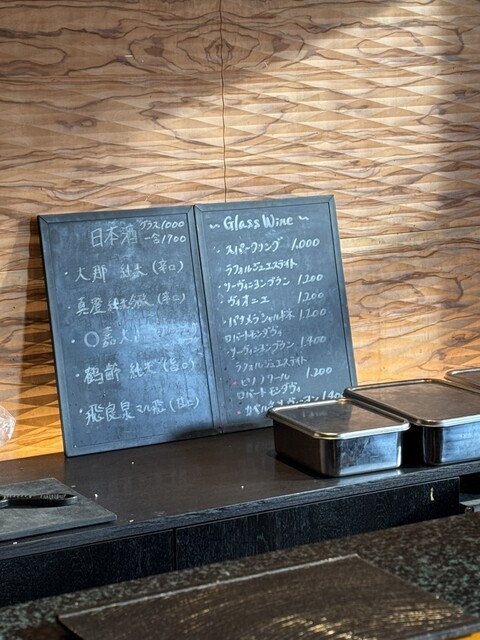 日本酒 グラス1000
一合1700
・大那 純米 (辛口)
・真澄 純米吟醸 (辛口)
・鶴齢 純米 (旨口)
・飛良泉 マル飛 (甘上)
~ Glass Wine ~
・スパークリング 1,000
ラフォルジュエステイト
・ソーヴィニヨンブラン 1,200
・ヴィオニエ 1,200
・パナメラ シャルドネ 1,200
ロバートモンダヴィ
・ソーヴィニヨンブラン 1,400
ラフォルジュエステイト
・ピノノワール 1,200
ロバートモンダヴィ